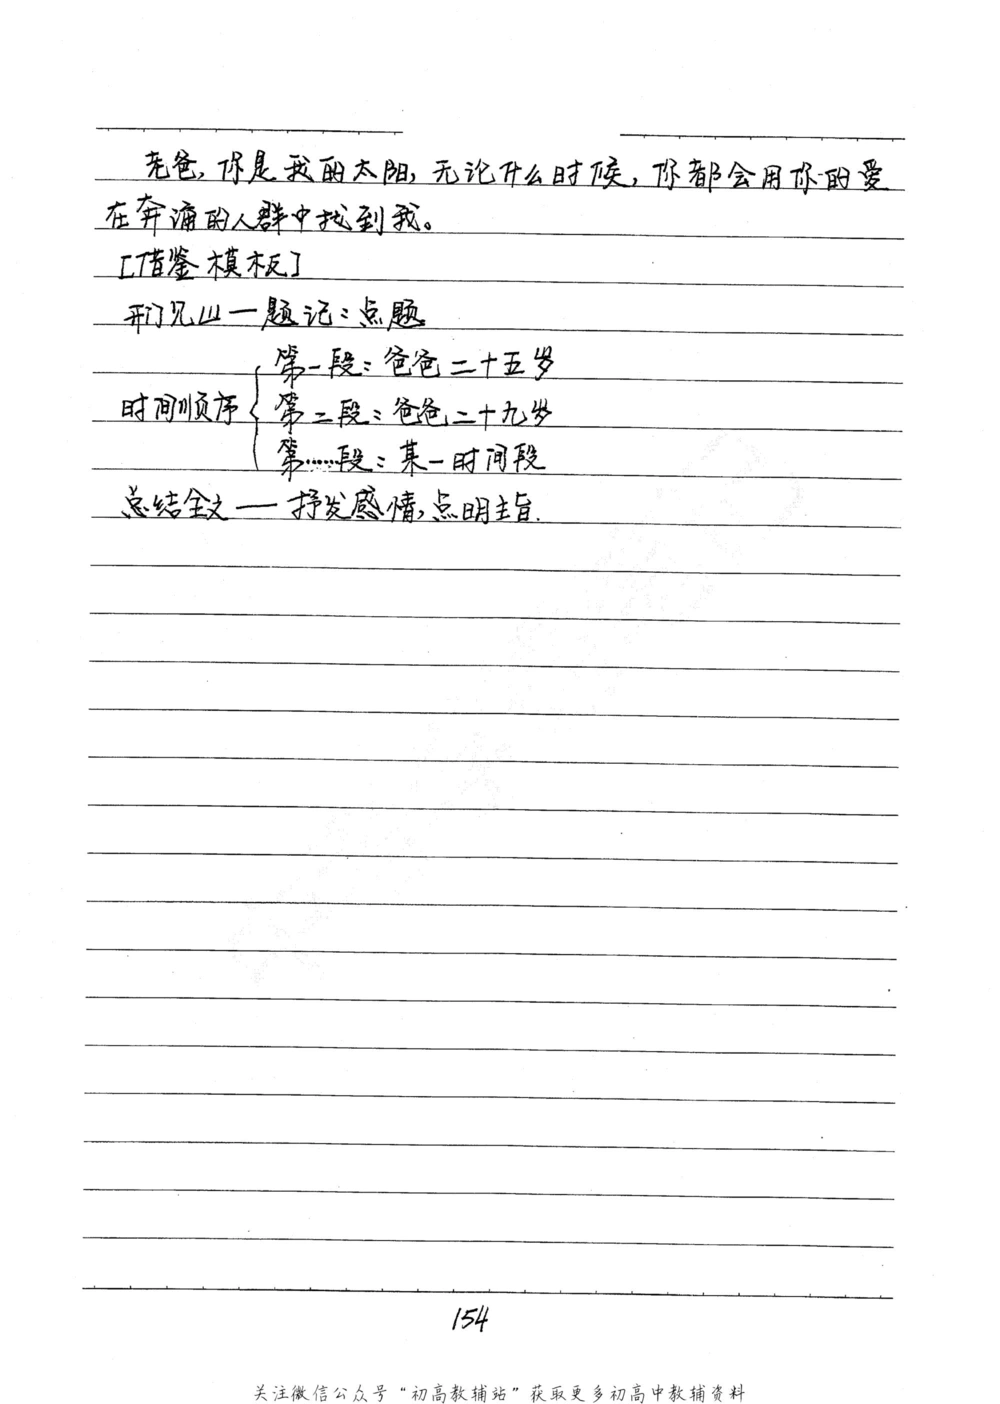 老爸,你是我的太阳,无论什么时候,你都会用你的爱
在奔涌的人群中找到我。
[借鉴模板]
开门见山一题记:点题
第一段:爸爸二十五岁
时间顺序 第二段:爸爸二十九岁
第……段:某一时间段
总结全文——抒发感情,点明主旨.
154
关注微信公众号“初高教辅站”获取更多初高中教辅资料